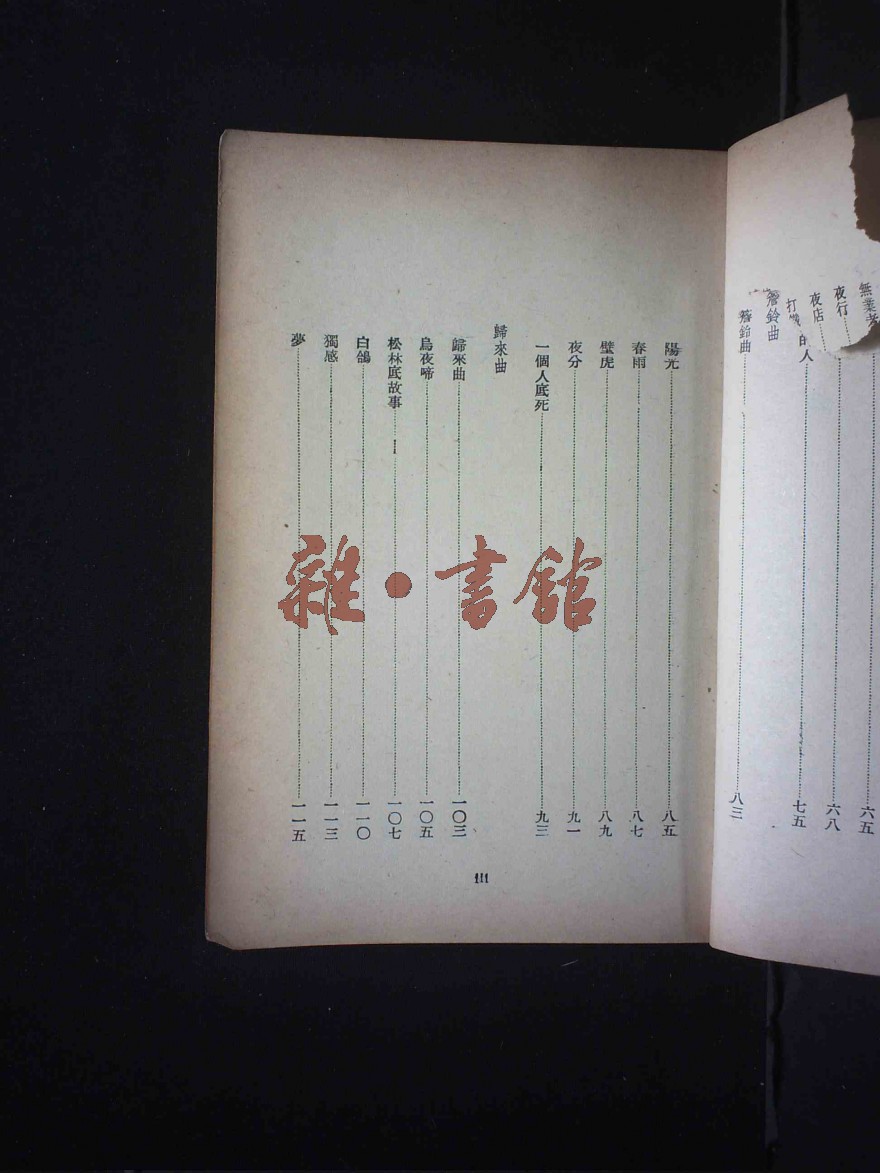 無業者 六五
夜行 六八
夜店
打 的人 七五
簷鈴曲
簷鈴曲 八三
陽光 八五
春雨 八七
壁虎 八九
夜分 九一
一個人底死 九三
歸來曲
歸來曲 一〇三
烏夜啼 一〇五
松林底故事 一〇七
白鴿 一一〇
獨感 一一三
夢 一一五
111
雜·書館